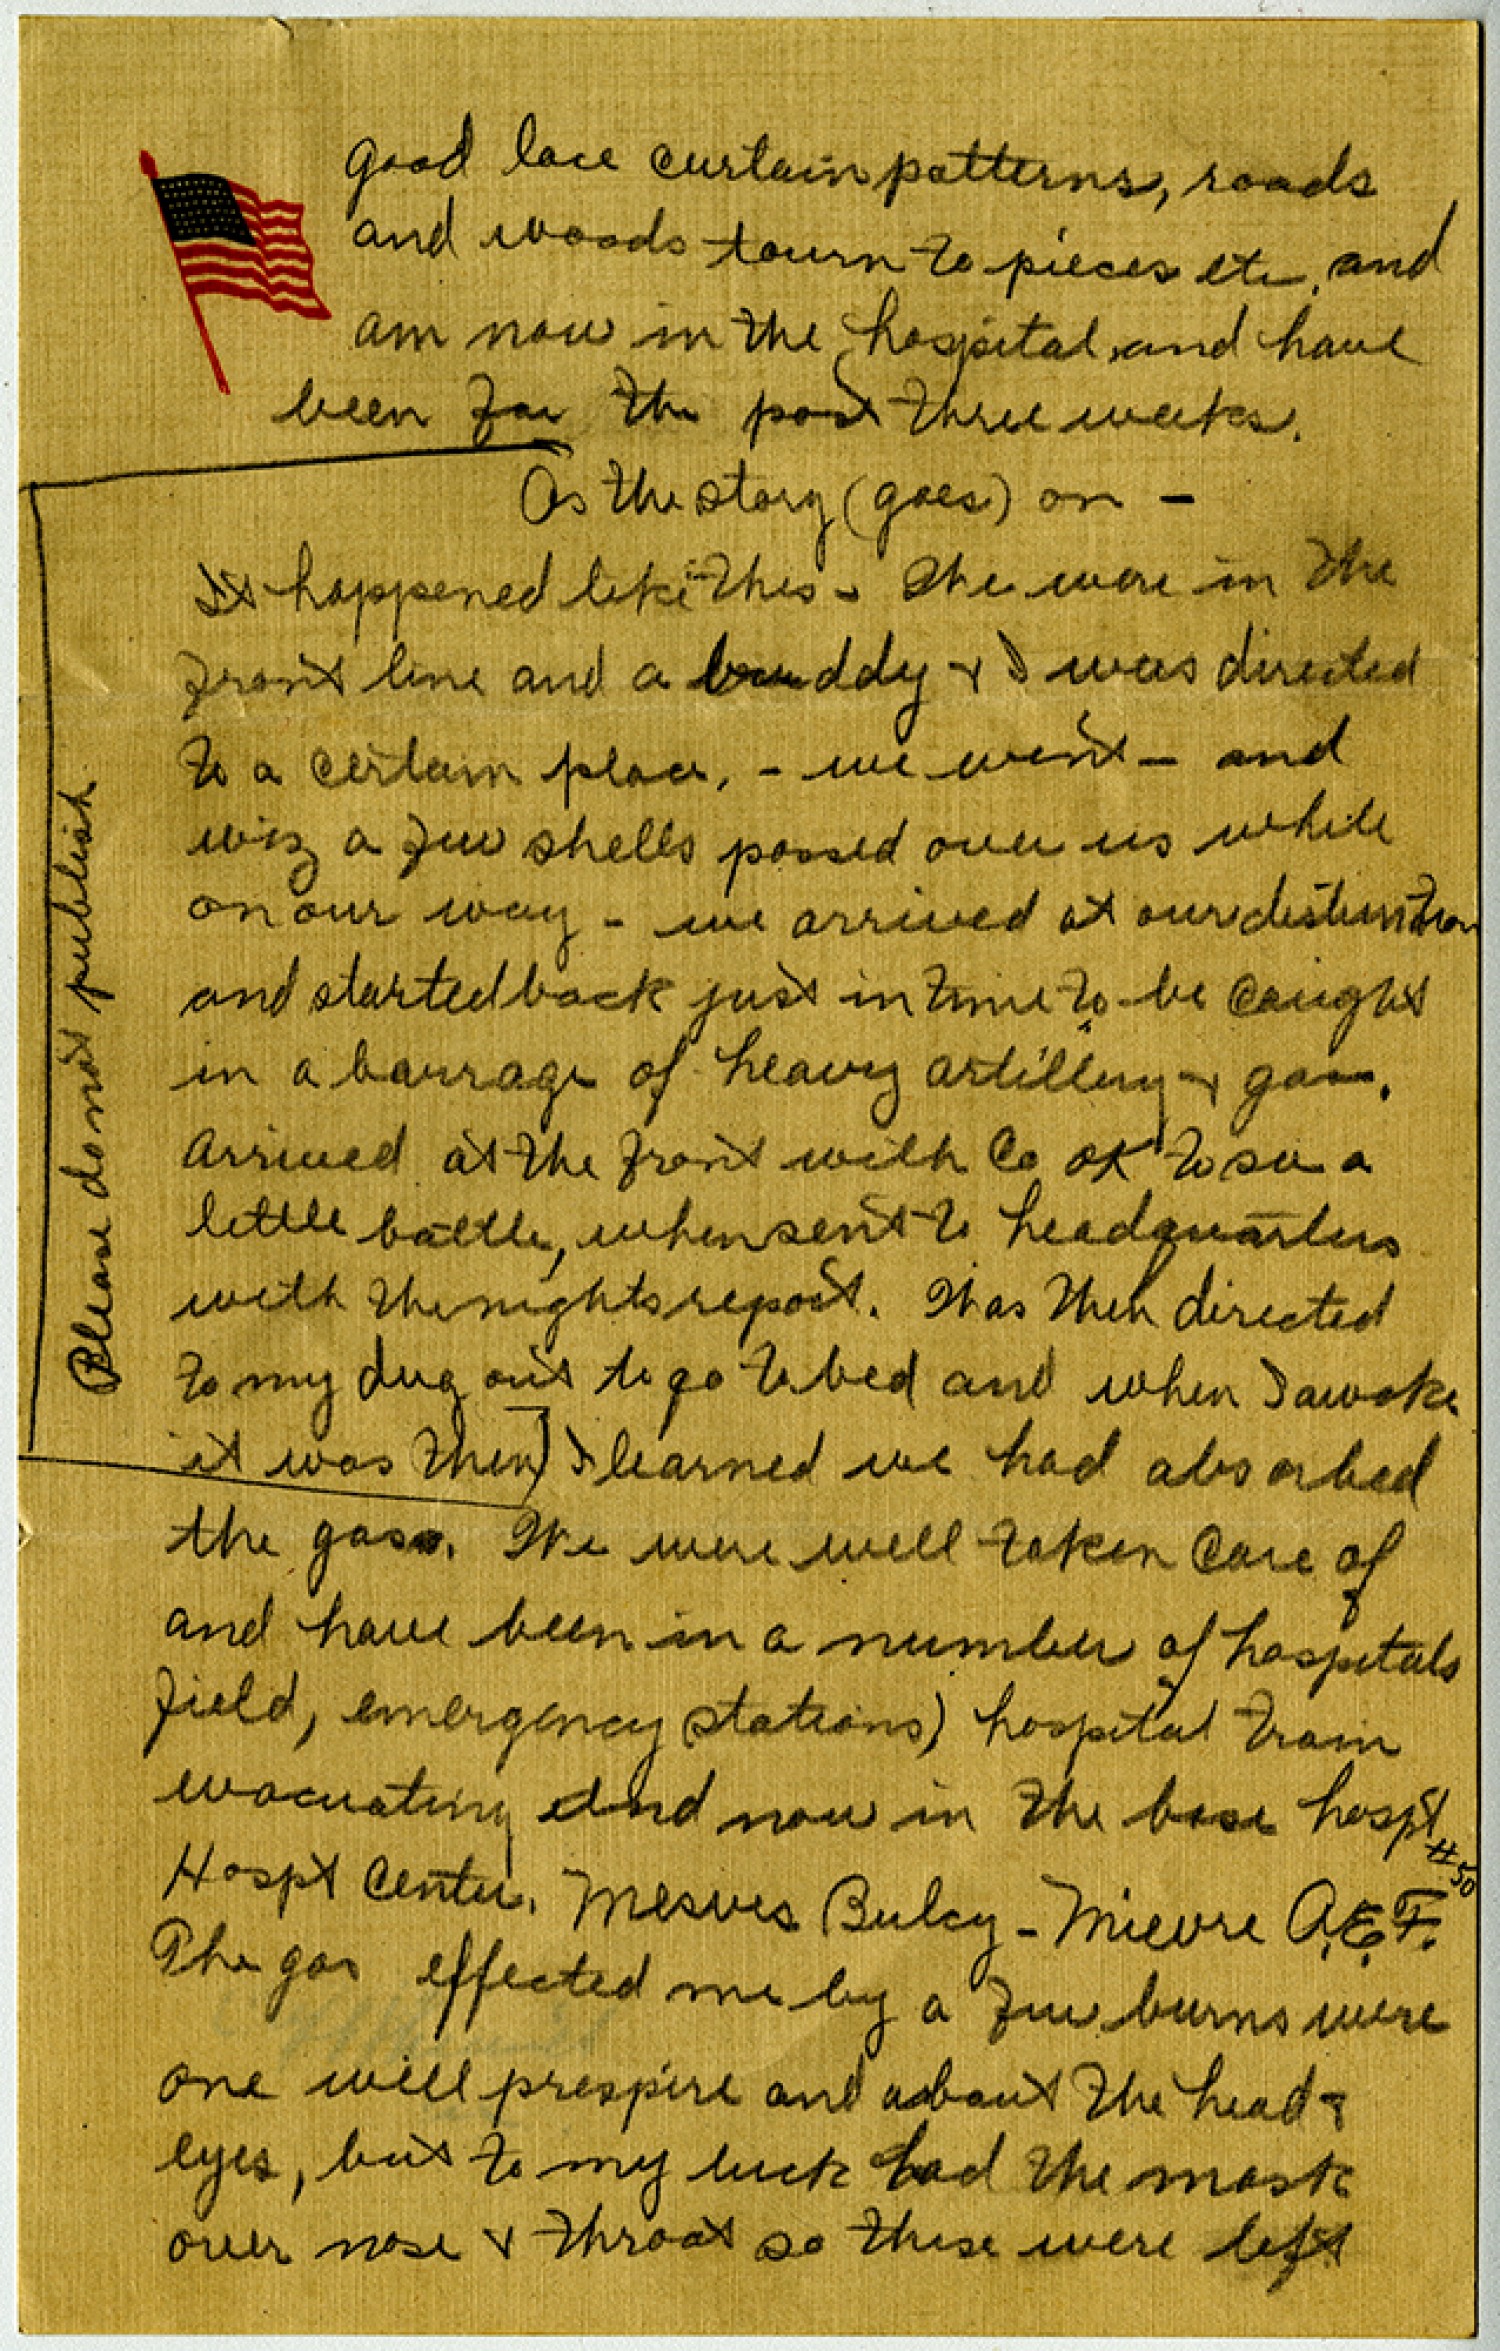 good lace curtain patterns, roads
and woods tourn to pieces etc, and
am now in the hospital, and have
been for the past three weeks.
As the story (goes) on -
It happened like this - We were in the
front line and a buddy + I was directed
to a certain place, - we went - and
wiz a few shells passed over us while
on our way - we arrived at our destination
and started back just in time to be caught
in a barrage of heavy artillery + gas.
Arrived at the front with Co OK to see a
little battle, when sent to headquarters
with the nights report. Was then directed
to my dug out to go to bed and when I awoke
it was then] I learned we had absorbed
the gas. We were well taken care of
and have been in a number of hospitals
field, emergency (stations) hospital train
evacuating and now in the base hospt #50
Hospt Center, Mesves Bulcy - Mievre A.E.F.
The gas effected me by a few burns were
one will prespire and about the head +
eyes, but to my luck had the mask
over nose + throat so these were left
Please do not publish